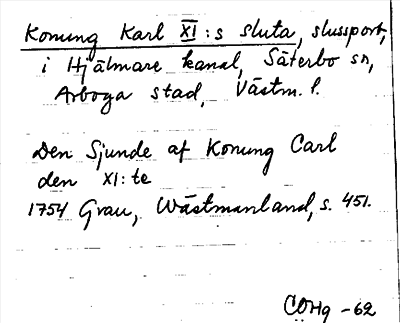 Konung Karl XI:s sluta, slussport,
i Hjälmare kanal, Säterbo sn,
Arboga stad, Västm. l.
Den Sjunde af Konung Carl
den XI:te
1754 Grau, Wästmanland, s. 451.
COHg -62